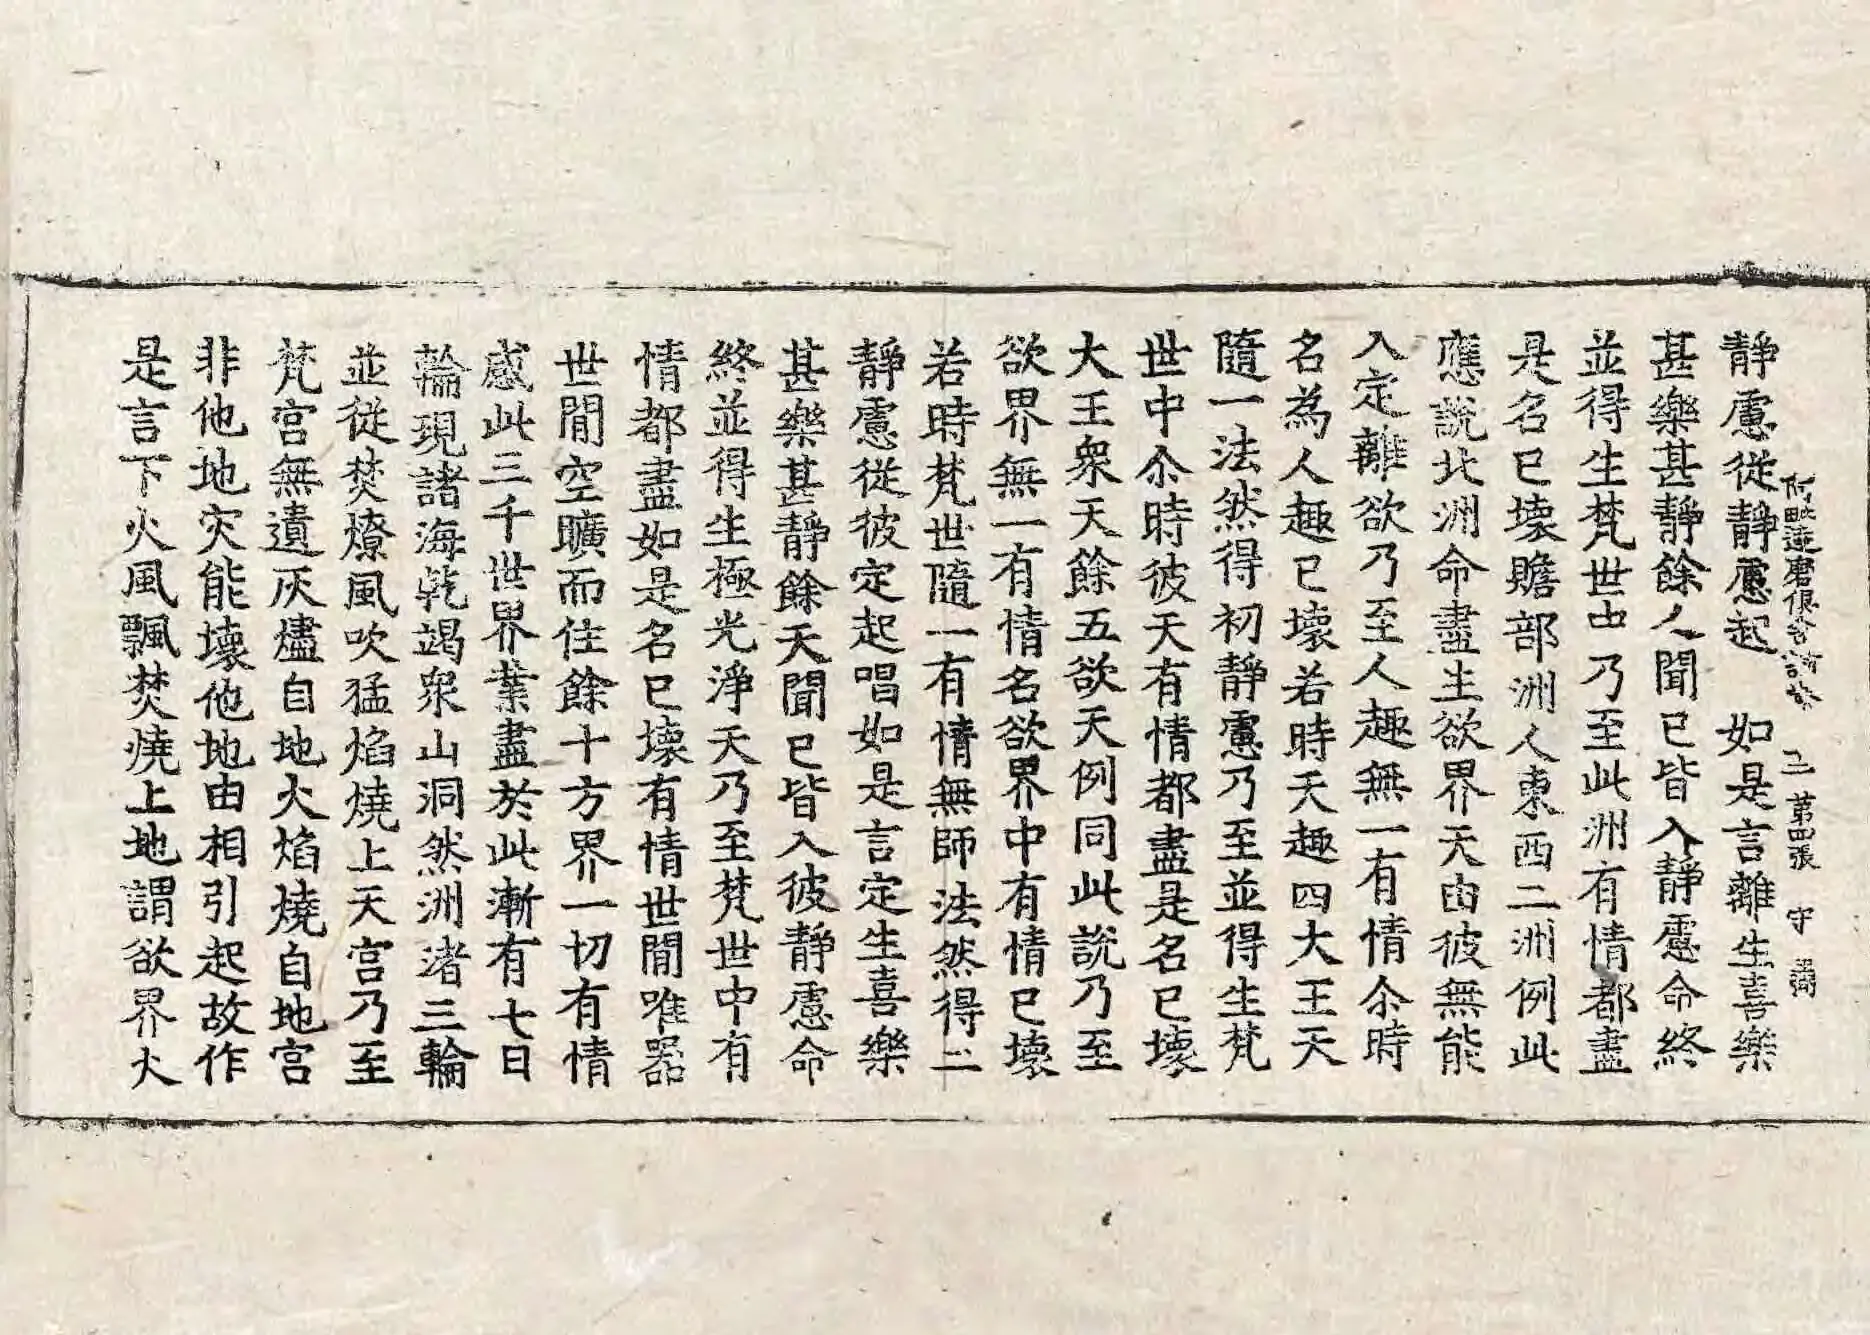 阿毗達磨俱舍論 第四張 守
靜慮從靜慮起 如是言離生喜樂
甚樂甚靜餘人聞已皆入靜慮命終
並得生梵世中乃至此洲有情都盡
是名已壞贍部洲人東西二洲例此
應說北洲命盡生欲界天由彼無能
入定離欲乃至人趣無一有情尒時
名為人趣已壞若時天趣四大王天
隨一法然得初靜慮乃至並得生梵
世中尒時彼天有情都盡是名已壞
大王衆天餘五欲天例同此說乃至
欲界無一有情名欲界中有情已壞
若時梵世隨一有情無師法然得二
靜慮從彼定起唱如是言定生喜樂
甚樂甚靜餘天聞已皆入彼靜慮命
終並得生極光淨天乃至梵世中有
情都盡如是名已壞有情世間唯器
世間空曠而住餘十方界一切有情
感此三千世界業盡於此漸有七日
輪現諸海乾竭衆山洞然洲渚三輪
並從焚燎風吹猛焰燒上天宮乃至
梵宮無遺灰燼自地火焰燒自地宮
非他地灾能壞他地由相引起故作
是言下火風飄焚燒上地謂欲界火